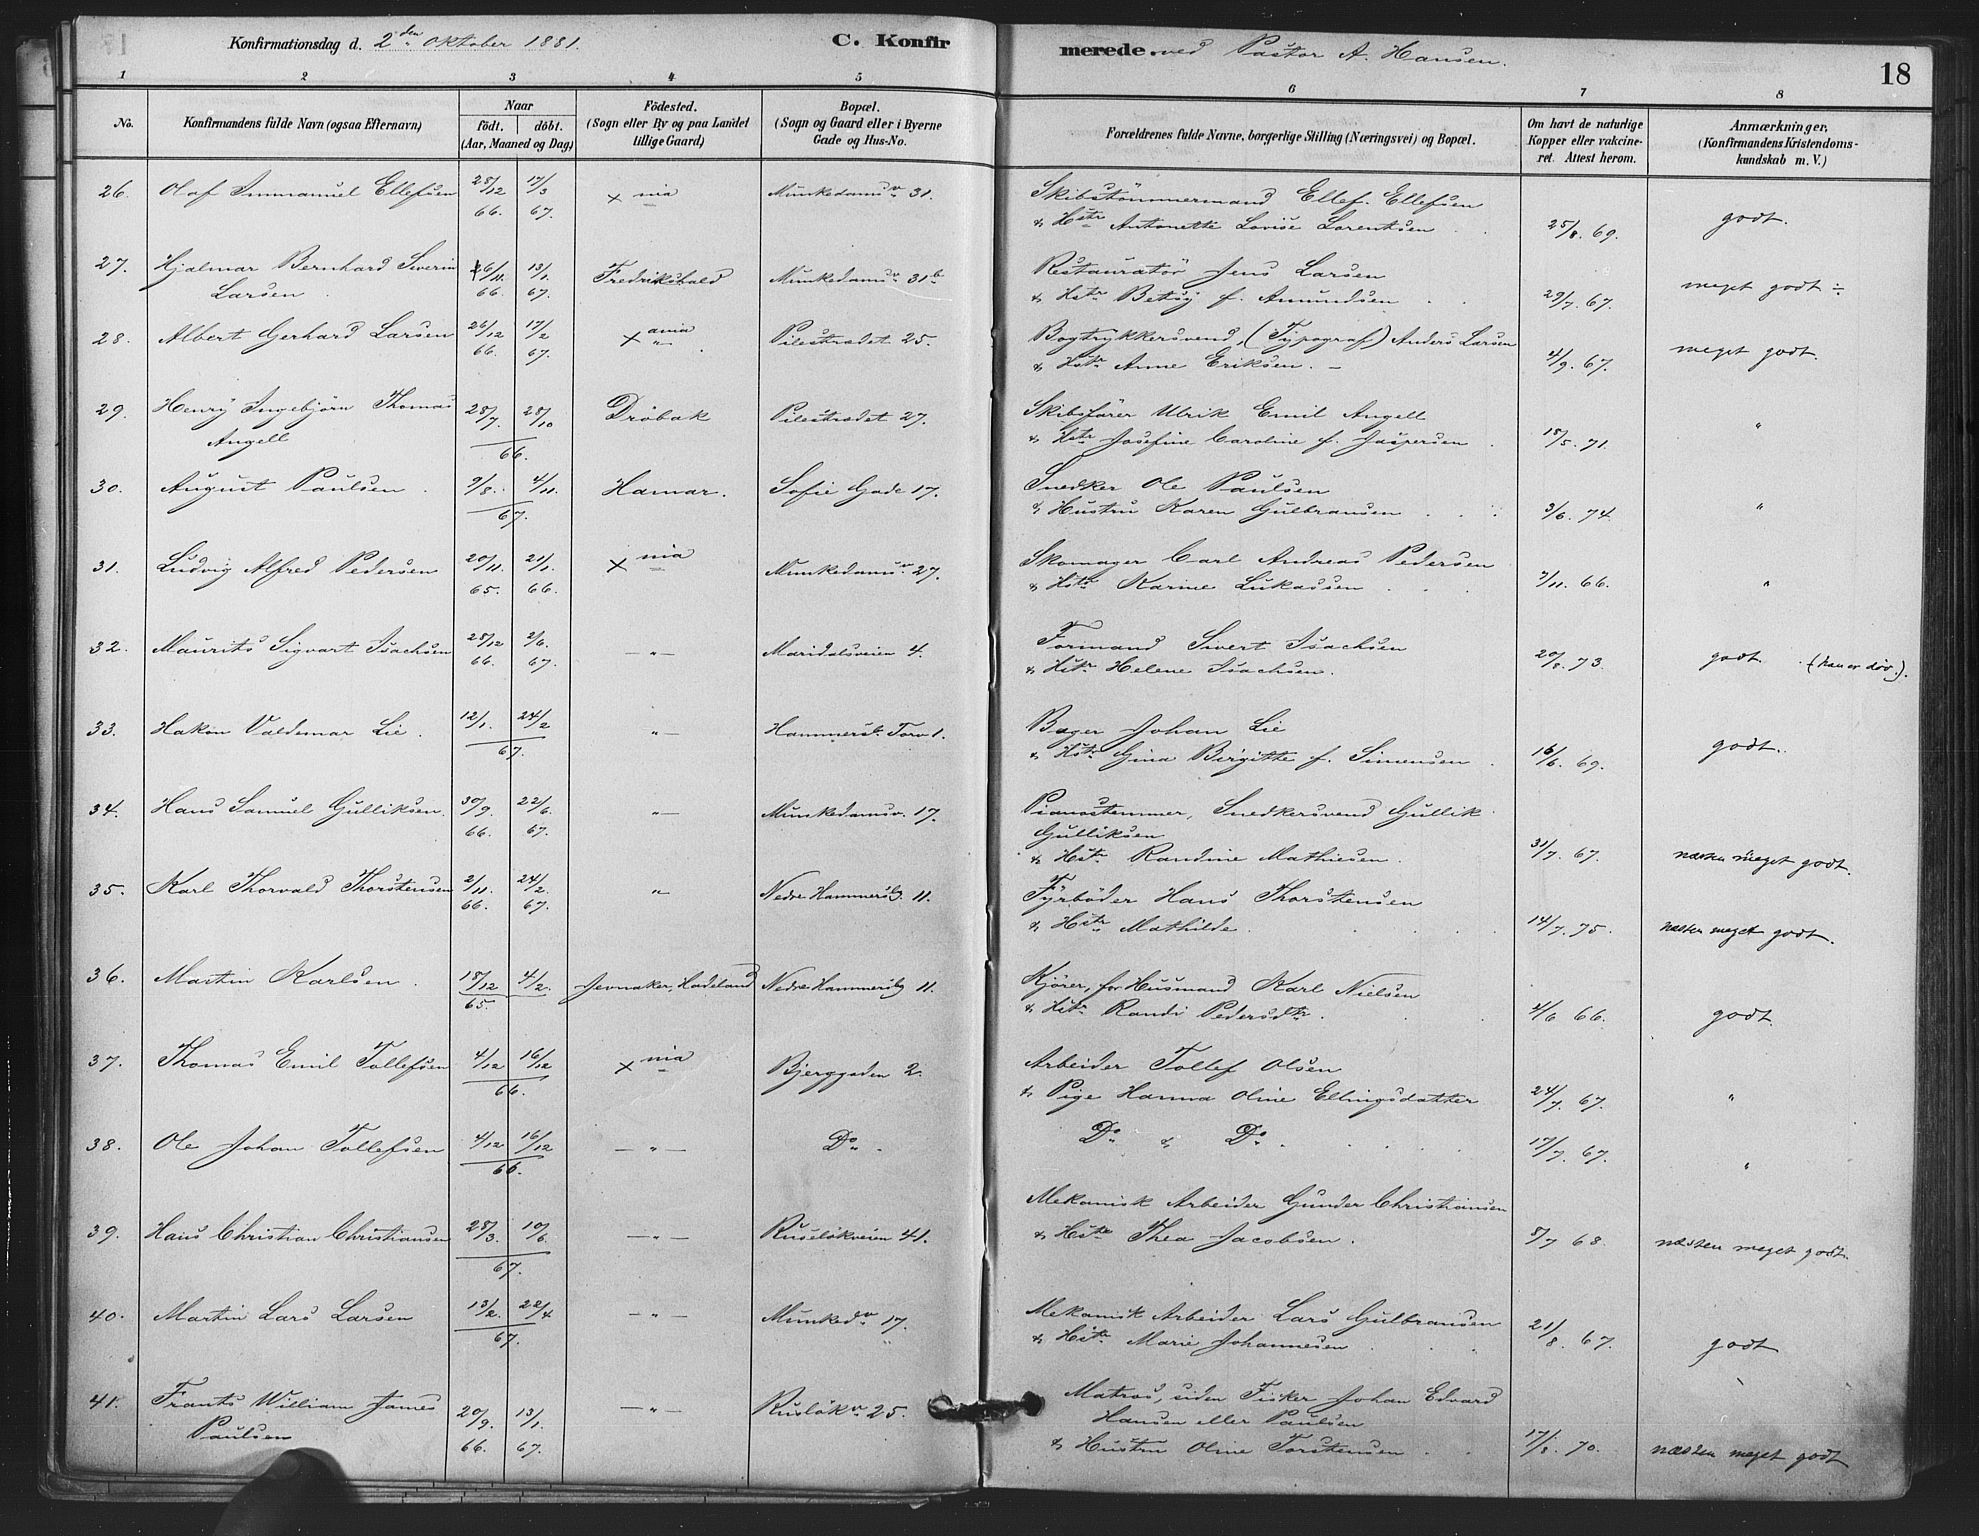 Konfirmationsdag d. 2den Oktober 1881. C. Konfirmerede. ved Pastor A. Hansen. 18
1 2 3 4 5 6 7 8
No. Konfirmandens fulde Navn (ogsaa Efternavn) Naar födt. döbt. (Aar, Maaned og Dag) Födested. (Sogn eller By og paa Landet tillige Gaard) Bopæl. (Sogn og Gaard eller i Byerne Gade og Hus-No. Forældrenes fulde Navne, borgerlige Stilling (Næringsvei) og Bopæl. Om havt de naturlige Kopper eller vakcineret. Attest herom. Anmærkninger, (Konfirmandens Kristendomskundskab m. V.)
26. Olaf Immanuel Ellefsen 28/12 66. 17/3 67. Xnia Munkedamsv. 31. Skibstömmermand Ellef Ellefsen
& Hstr Antonette Lovise Lorentsen 25/8. 69. godt.
27. Hjalmar Bernhard Severin Larsen 26/11 66. 13/1 67. Fredrikshald Munkedamsv. 31b Restauratör Jens Larsen
& Hstr Betsy f. Amundsen 29/7. 67. meget godt ÷
28. Albert Gerhard Larsen 26/12 66. 17/2 67. Xania Pilestrædet 25. Bogtrykkersvend, (Typograf) Anders Larsen
& Hstr Anne Eriksen. 4/9. 67. meget godt.
29. Henry Ingebjörn Thomas Angell 28/7. 28/10 66. Dröbak Pilestrædet 27. Skibsförer Ulrik Emil Angell
& Hstr Josefine Caroline f. Jaspersen 18/5. 71. "
30. August Paulsen 9/8. 4/11. 67. Hamar. Sofie Gade 17. Snedker Ole Paulsen
& Hustru Karen Gulbransen 3/6. 74. "
31. Ludvig Alfred Pedersen 20/11. 65. 21/1. 66. Xnia Munkedamsv. 27. Skomager Carl Andreas Pedersen
& Hstr Karine Lukassen 7/11. 66. "
32. Maurits Sigvart Isachsen 28/12 66. 2/6. 67. — " — Maridalsveien 4. Formand Sivert Isachsen
& Hstr Helene Isachsen. 20/8. 73. godt. (han er döv.).
33. Hakon Valdemar Lie. 12/1. 24/2 67. " — Hammersb. Torv 1. Bager Johan Lie
& Hstr Gina Birgitte f. Simensen 16/6. 69. godt.
34. Hans Samuel Gulliksen. 30/9. 66. 22/6. 67. " — Munkedamsv. 17. Pianostemmer, Snedkersvend Gullik
Gulliksen
& Hstr Randine Mathiesen. 31/7. 67. næsten meget godt.
35. Karl Thorvald Thorstensen 2/11. 66. 24/2. 67. " Nedre Hammersbg 11. Fyrböder Hans Thorstensen
& Hstr Mathilde. 14/7. 75. næsten meget godt.
36. Martin Karlsen. 18/12 4/2. 65. Jevnaker, Hadeland Nedre Hammersbg 11. Kjörer, för Husmand Karl Nielsen
& Hstr Randi Pedersdtr. 4/6 66. godt.
37. Thomas Emil Tollefsen 4/12 16/12 66. Xnia Bjerggaden 2. Arbeider Tollef Olsen
& Pige Hanna Oline Ellingsdatter 24/7. 67. "
38. Ole Johan Tollefsen 4/12 16/12 66. — " — Do. Do & Do. 17/7. 67. "
39. Hans Christian Christiansen 28/3. 10/6. 67. — " — Ruselökveien 41. Mekanisk Arbeider Gunder Christiansen
& Hstr Thea Jacobsen. 8/7 68. næsten meget godt.
40. Martin Lars Larsen 13/2. 22/4 67. — " — Munkedv. 17. Mekanisk Arbeider Lars Gulbransen
& Hstr Marie Johannesen 21/8. 67. godt
41. Frants William James Paulsen 20/9. 66. 13/1. 67. — " — Ruslökv. 25. Matros, siden Fisker Johan Edvard
Hansen eller Paulsen
& Hustru Oline Torstensen 17/8. 70. næsten meget godt